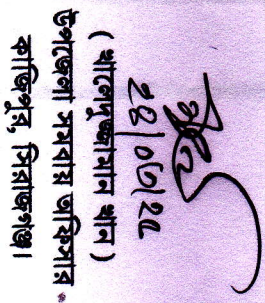 ২৪/০৩/২২
(খালেদুজ্জামান খান)
উপজেলা সমবায় অফিসার
কাজিপুর, সিরাজগঞ্জ।